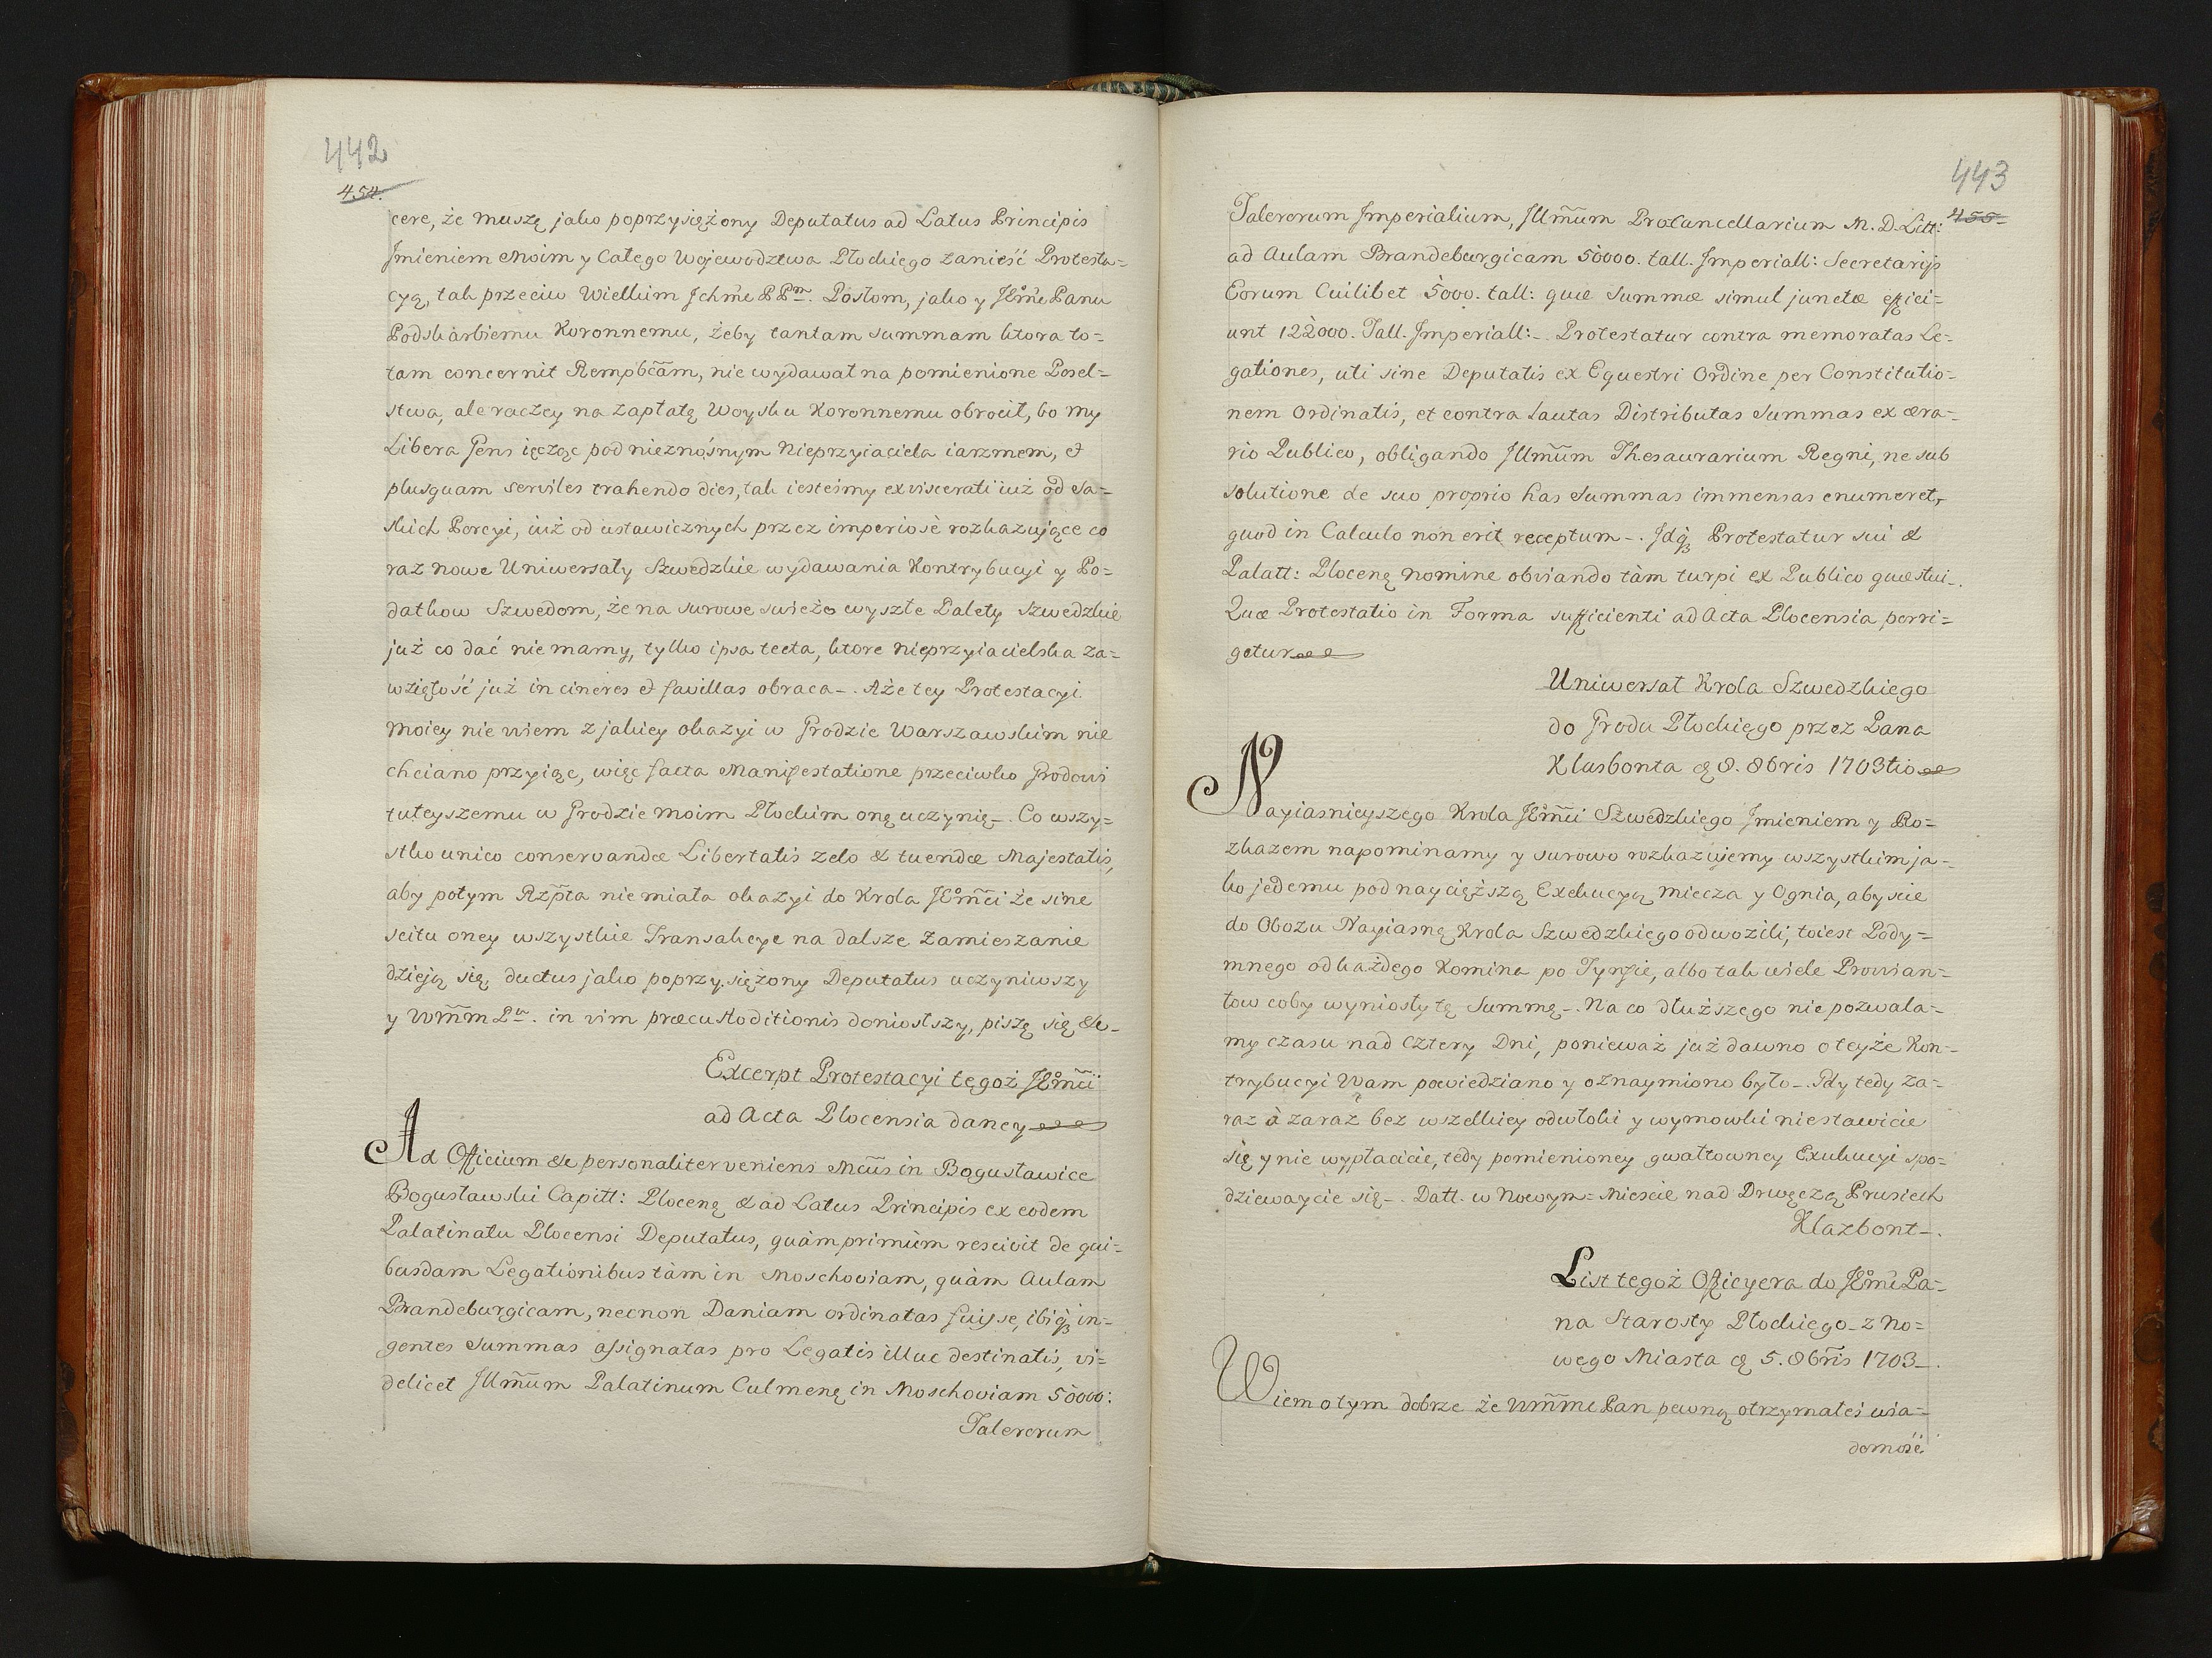 442
454.
cere, że muszę jako poprzysiężony Deputatus ad Latus Principis
Jmieniem Moim y Całego Wojewodztwa Płockiego zanieść Protesta=
cyą, tak przeciw Wielkim Jchm̃e PPm. Posłom, jako y JEm̃e Panu
Podskàrbiemu Koronnemu, żeby tantam summam ktora to=
tam concernit Rempbc̃am, nie wydawał na pomienione Posel=
stwa, ale raczey na zapłatę Woysku Koronnemu obrocił, bo my
Libera Gens ięcząc pod nieznośnym Nieprzyiaciela iarzmem, et
plusquam serviles trahendo dies, tak iesteśmy exviscerati iuż od Sa=
skich Porcyi, iuż od ustawicznych przez imperiosè rozkazujące co
raz nowe Uniwersały Szwedzkie wydawania Kontrybucyi y Po=
datkow Szwedom, że na surowe swieżo wyszłe Palety Szwedzkie
już co dać nie mamy, tylko ipsa tecta, ktore nieprzyiacielska za=
wziętość już in cineres et favillas obraca-. Aże tey Protestacyi
moiey nie wiem z jakiey okazyi w Grodzie Warszawskim nie
chciano przyiąc, więc facta Manifestatione przeciwko Grodowi
tuteyszemu w Grodzie moim Płockim onę uczynię-. Co wszy=
stko unico conservandæ Libertatis zelo & tuendæ Majestatis,
aby potym Rzp̃ta nie miała okazyi do Krola JEm̃ci że sine
scitu oney wszystkie Transakcye na dalsze zamieszanie
dzieją się, ductus jako poprzysiężony Deputatus uczyniwszy
y Wm̃m Pu. in vim præcustoditionis doniosłszy, piszę się &c-
Excerpt Protestacyi tegoż JEm̃ci
ad Acta Plocensia daney
Ad Officium &c personaliter veniens Mcũs in Bogusławice
Bogusławski Capitt: Plocenę & ad Latus Principis ex eodem
Palatinatu Plocensi Deputatus, quàm primùm rescivit de qui=
busdam Legationibus tàm in Moschoviam, quàm Aulam
Brandeburgicam, necnon Daniam ordinatas fuisse, ibiq̃ in=
gentes Summas assignatas pro Legatis illuc destinatis, vi=
delicet Jllm̃um Palatinum Culmenę in Moschoviam 50000:
Talerorum
443
455
Talerorum Jmperialium, Jllm̃um Procancellarium M. D. Litt:
ad Aulam Brandeburgicam 50000. tall. Jmperiall: Secretarijs
Eorum Cuilibet 5000. tall: quæ Summæ simul junctæ effici=
unt 122000. Tall. Jmperiall:-. Protestatur contra memoratas Le=
gationes, uti sine Deputatis ex Equestri Ordine per Constitutio=
nem Ordinatis, et contra tantas Distributas Summas ex æra=
rio Publico, obligando Jllm̃um Thesaurarium Regni, ne sub
solutione de suo proprio has Summas immensas enumeret,
quod in Calculo non erit receptum-. Jdq̃ Protestatur sui &
Palatt: Plocenę nomine obviando tàm turpi ex Publico quæstui-.
Quæ Protestatio in Forma sufficienti ad Acta Plocensia porri=
getur
Uniwersał Krola Szwedzkiego
do Grodu Płockiego przez Pana
Klasbonta ę 8. 8bris 1703tio
Nayiasnieyszego Krola JEm̃ci Szwedzkiego Jmieniem y Ro=
zkazem napominamy y surowo rozkazujemy wszystkim ja=
ko jedemu pod naycięższą Exekucyą Miecza y Ognia, abyscie
do Obozu Nayiasnę Krola Szwedzkiego odwozili, toiest Pody=
mnego od każdego Komina po Tynfie, albo tak wiele Prowian=
tow coby wyniosły tę Summę-. Na co dłuższego nie pozwala=
my czasu nad Cztery Dni, ponieważ już dawno o teyże Kon=
trybucyi Wam powiedziano y oznaymiono było-. Gdy tedy za=
raz à zaraz bez wszelkiey odwłoki y wymowki niestawicie
się y nie wypłacicie, tedy pomienioney gwałtowney Exekucyi spo=
dziewaycie się-. Datt. w Nowym=Mieście nad Drwęczą Prusiech
Klazbont-.
List tegoż Officyera do JEm̃e Pa=
na Starosty Płockiego z No=
wego Miasta ę 5. 8br̃is 1703-.
Wiem o tym dobrze że Wm̃me Pan pewną otrzymałeś wia=
domość